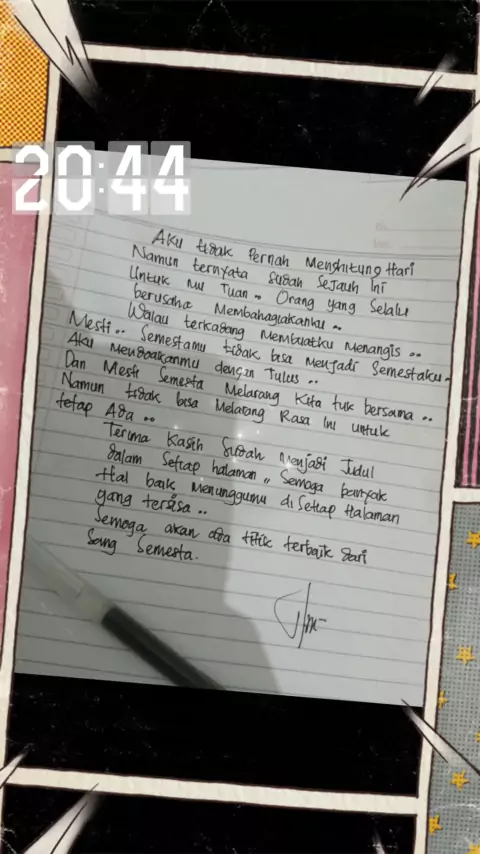 20:44
Aku tidak Pernah Menghitung Hari
Namun ternyata sudah sejauh ini
Untuk mu Tuan.. Orang yang Selalu
berusaha Membahagiakanku..
Walau terkadang Membuatku Menangis..
Mesti.. Semestamu tidak bisa Menjadi Semestaku.
Aku Mendoakanmu dengan Tulus..
Dan Mesti Semesta Melarang Kita tuk bersama..
Namun tidak bisa Melarang Rasa ini untuk
tetap Ada..
Terima Kasih Sudah Menjadi Judul
dalam Setiap halaman,, Semoga banyak
Hal baik Menunggumu di Setiap Halaman
yang tersisa..
Semoga akan ada titik terbaik dari
Sang Semesta.